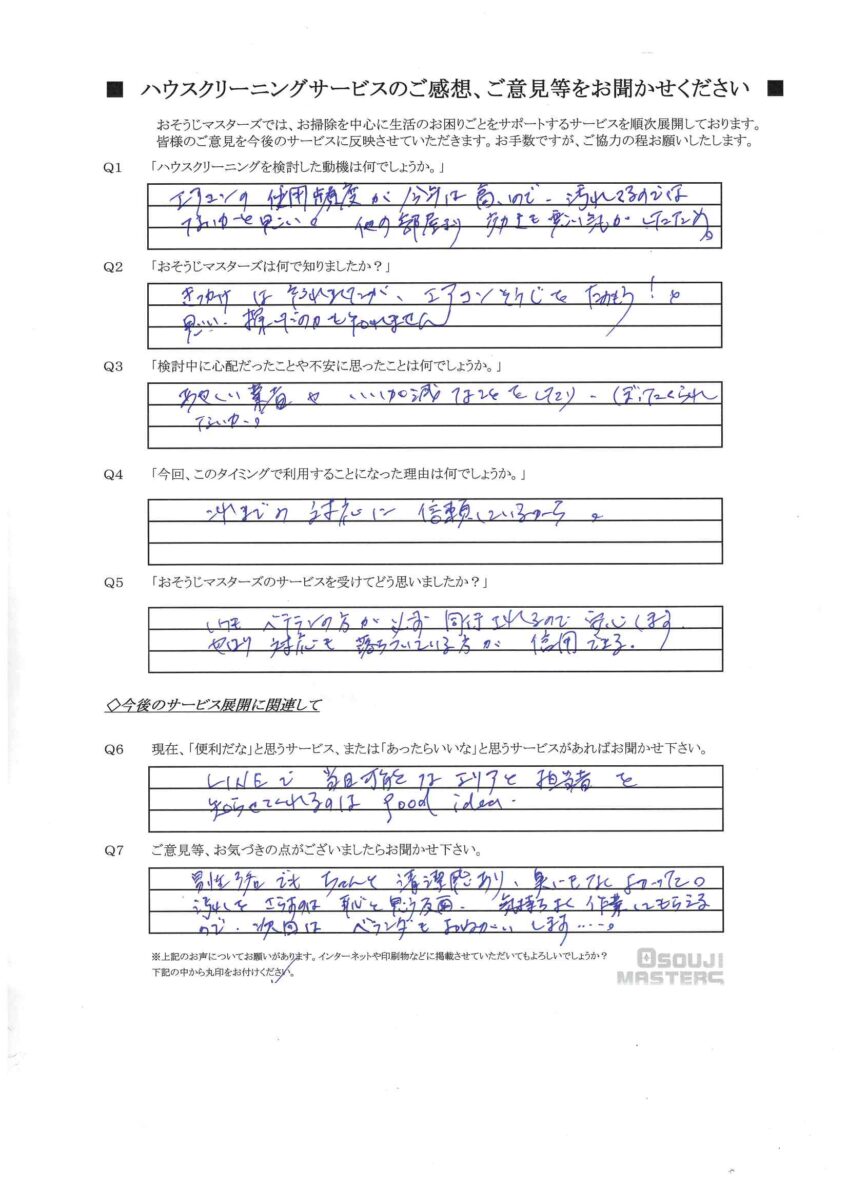 ■ ハウスクリーニングサービスのご感想、ご意見等をお聞かせください ■
おそうじマスターズでは、お掃除を中心に生活のお困りごとをサポートするサービスを順次展開しております。
皆様のご意見を今後のサービスに反映させていただきます。お手数ですが、ご協力の程お願いしたします。
Q1 「ハウスクリーニングを検討した動機は何でしょうか。」
エアコンの使用頻度が今年は高いので、汚れてるのでは
ないかと思い。他の部屋より効きも悪い気がしたため。
Q2 「おそうじマスターズは何で知りましたか？」
きっかけは忘れましたが、エアコンそうじをたのもう！と
思い、探したのかも知れません
Q3 「検討中に心配だったことや不安に思ったことは何でしょうか。」
あやしい業者やいい加減なことをしたり、ぼったくられ
ないか。
Q4 「今回、このタイミングで利用することになった理由は何でしょうか。」
これまでの対応に信頼しているから。
Q5 「おそうじマスターズのサービスを受けてどう思いましたか？」
いつもベテランの方が必ず同行されるので安心します。
やはり対応も落ちついている方が信用できる。
◇今後のサービス展開に関連して
Q6 現在、「便利だな」と思うサービス、または「あったらいいな」と思うサービスがあればお聞かせ下さい。
LINEで当日可能なエリアと担当者を
知らせてくれるのはgood idea.
Q7 ご意見等、お気づきの点がございましたらお聞かせ下さい。
男性でもちゃんと清潔感あり、臭いもなくよかった。
汚れをさらすのは恥と思う反面、気持ちよく作業してもらえる
ので、次回はベランダをおねがいします……。
※上記のお声についてお願いがあります。インターネットや印刷物などに掲載させていただいてもよろしいでしょうか？
下記の中から丸印をお付けください。
OSOUJI
MASTERS